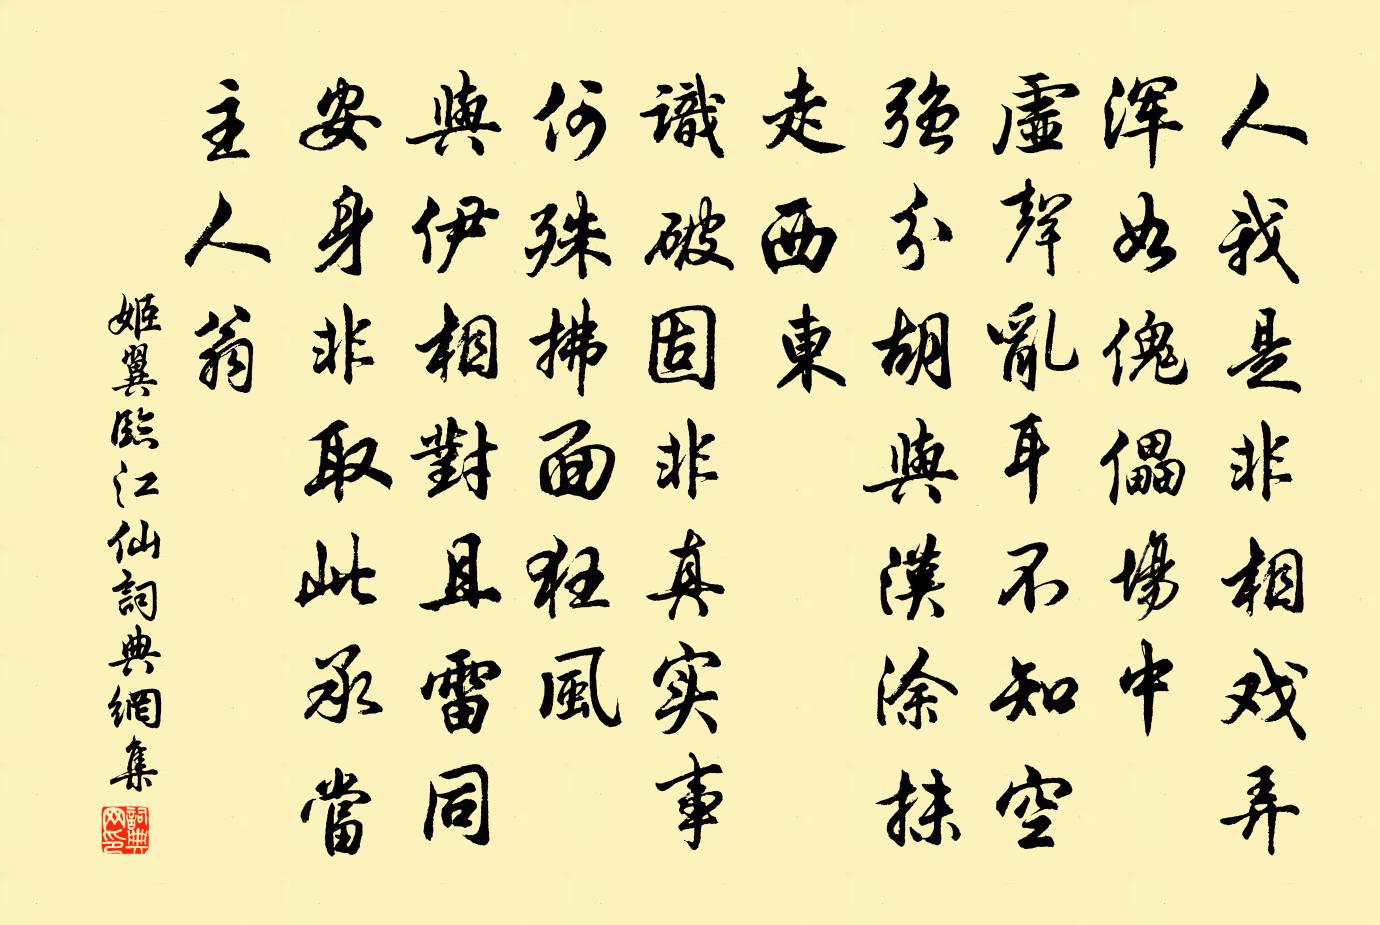 人我是非相戏弄
浑如傀儡場中
虛聲亂耳不知空
強分胡與漢涂抹
走西東
識破固非真实事
何殊拂面狂風
與伊相對且雷同
安身非取此承當
主人翁
姬翼臨江仙詞典網集
詞典网印